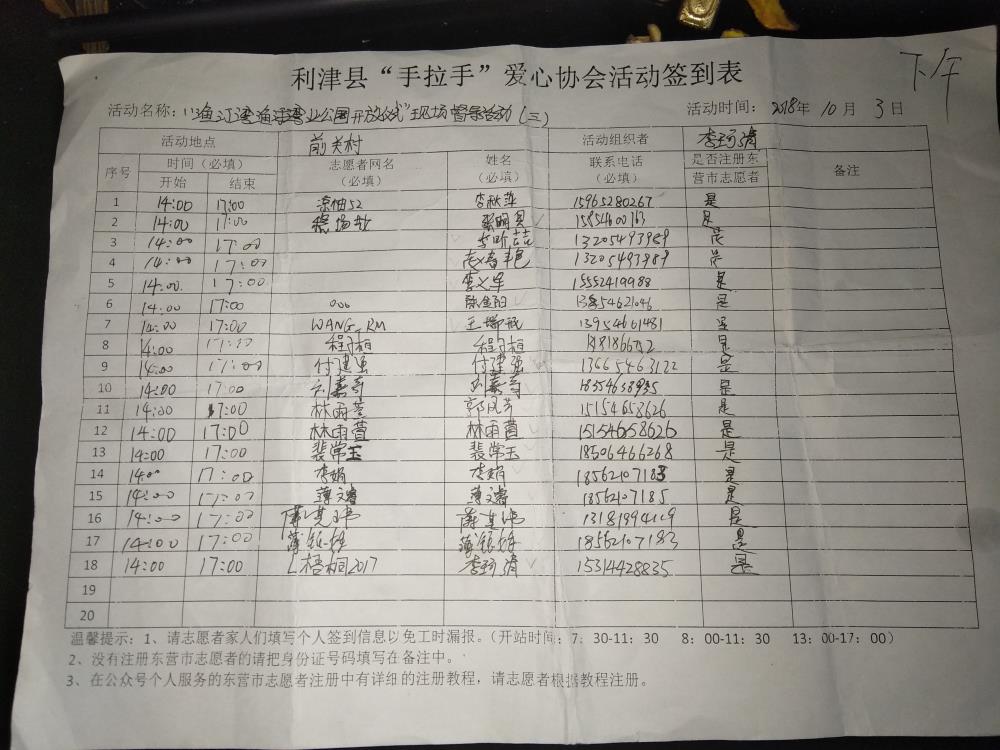 下午
利津县“手拉手”爱心协会活动签到表
活动名称: 活动(三) 活动时间: 2018年 10月 3日
活动地点 前关村 活动组织者
序号 时间(必填) 志愿者网名(必填) 姓名(必填) 联系电话(必填) 是否注册东营市志愿者 备注
开始 结束
1 14:00 17:00 李秋萍 15965280267 是
2 14:00 17:00 是
3 14:00 17:00 13205493989
4 14:00 17:00 13205493989
5 14:00 17:00 李义军 15552419988 是
6 14:00 17:00 是
7 14:00 17:00 WANG_RM 13954601481 是
8 14:00 17:00 是
9 14:00 17:00 付建强 付建强 13665463122 是
10 14:00 17:00 刘嘉奇 刘嘉奇 18354638935 是
11 14:00 17:00 林雨萱 郭凤芳 15154658626 是
12 14:00 17:00 林雨萱 林雨萱 15154658626 是
13 14:00 17:00 裴常玉 裴常玉 18506466268 是
14 14:00 17:00 李娟 李娟 18562107183 是
15 14:00 17:00 薄文睿 薄文睿 18562107185 是
16 14:00 17:00 是
17 14:00 17:00 18562107183 是
18 14:00 17:00 L梧桐2017 15314428835 是
19
20
温馨提示:1、请志愿者家人们填写个人签到信息以免工时漏报。(开站时间:7:30-11:30 8:00-11:30 13:00-17:00)
2、没有注册东营市志愿者的请把身份证号码填写在备注中。
3、在公众号个人服务的东营市志愿者注册中有详细的注册教程,请志愿者根据教程注册。